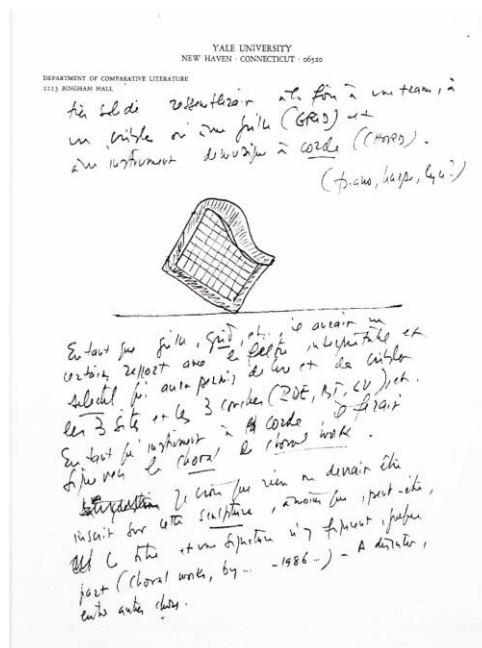 YALE UNIVERSITY
NEW HAVEN · CONNECTICUT · 06520
DEPARTMENT OF COMPARATIVE LITERATURE
1113 BINGHAM HALL
très solide ressemblerait à la fois à une trame, à
un crible ou une grille (GRID) et
à un instrument de musique à corde (CHORD).
(piano, harpe, lyre?)
En tant que grille, grid, etc., il aurait un
certain rapport avec le filtre interprétatif et
sélectif qui aura permis de lire et de cribler
les 3 sites et les 3 couches (PDE, BT, LV), etc.
En tant qu'instrument à corde il ferait
signe vers le choral de choral work.
Je crois que rien ne devrait être
inscrit sur cette sculpture, à moins que, peut-être,
titre et une signature n'y figurent, quelque
part (Choral work, by ... - 1986 ...) - A discuter,
entre autres choses.